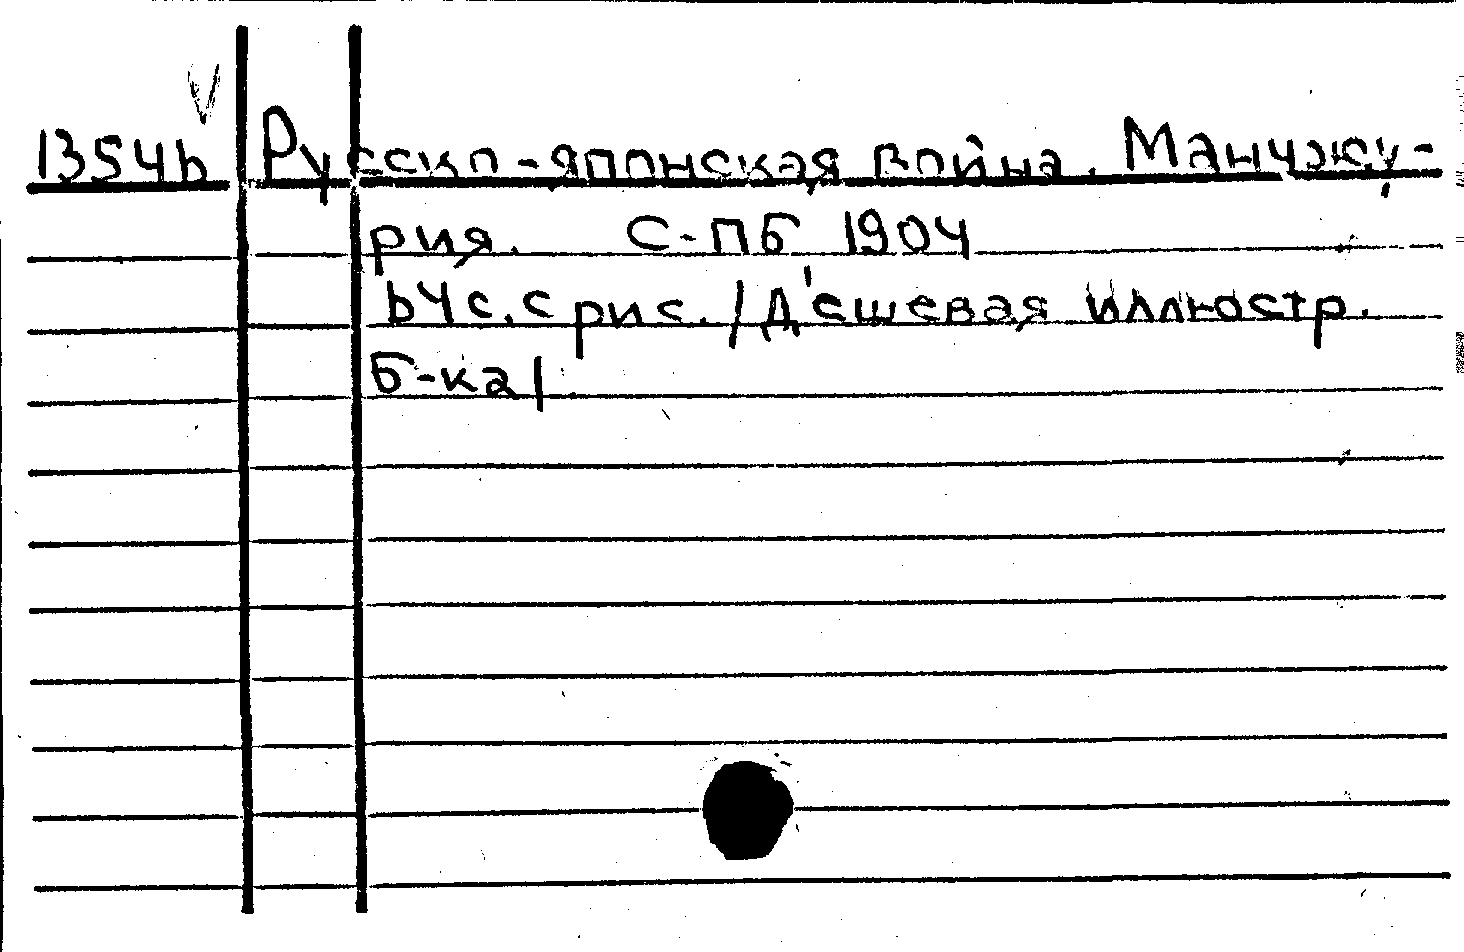 13546 Русско-японская война. Манчжу-
рия. С-ПБ 1904
64 с. с рис. /Дешевая иллюстр.
Б-ка/